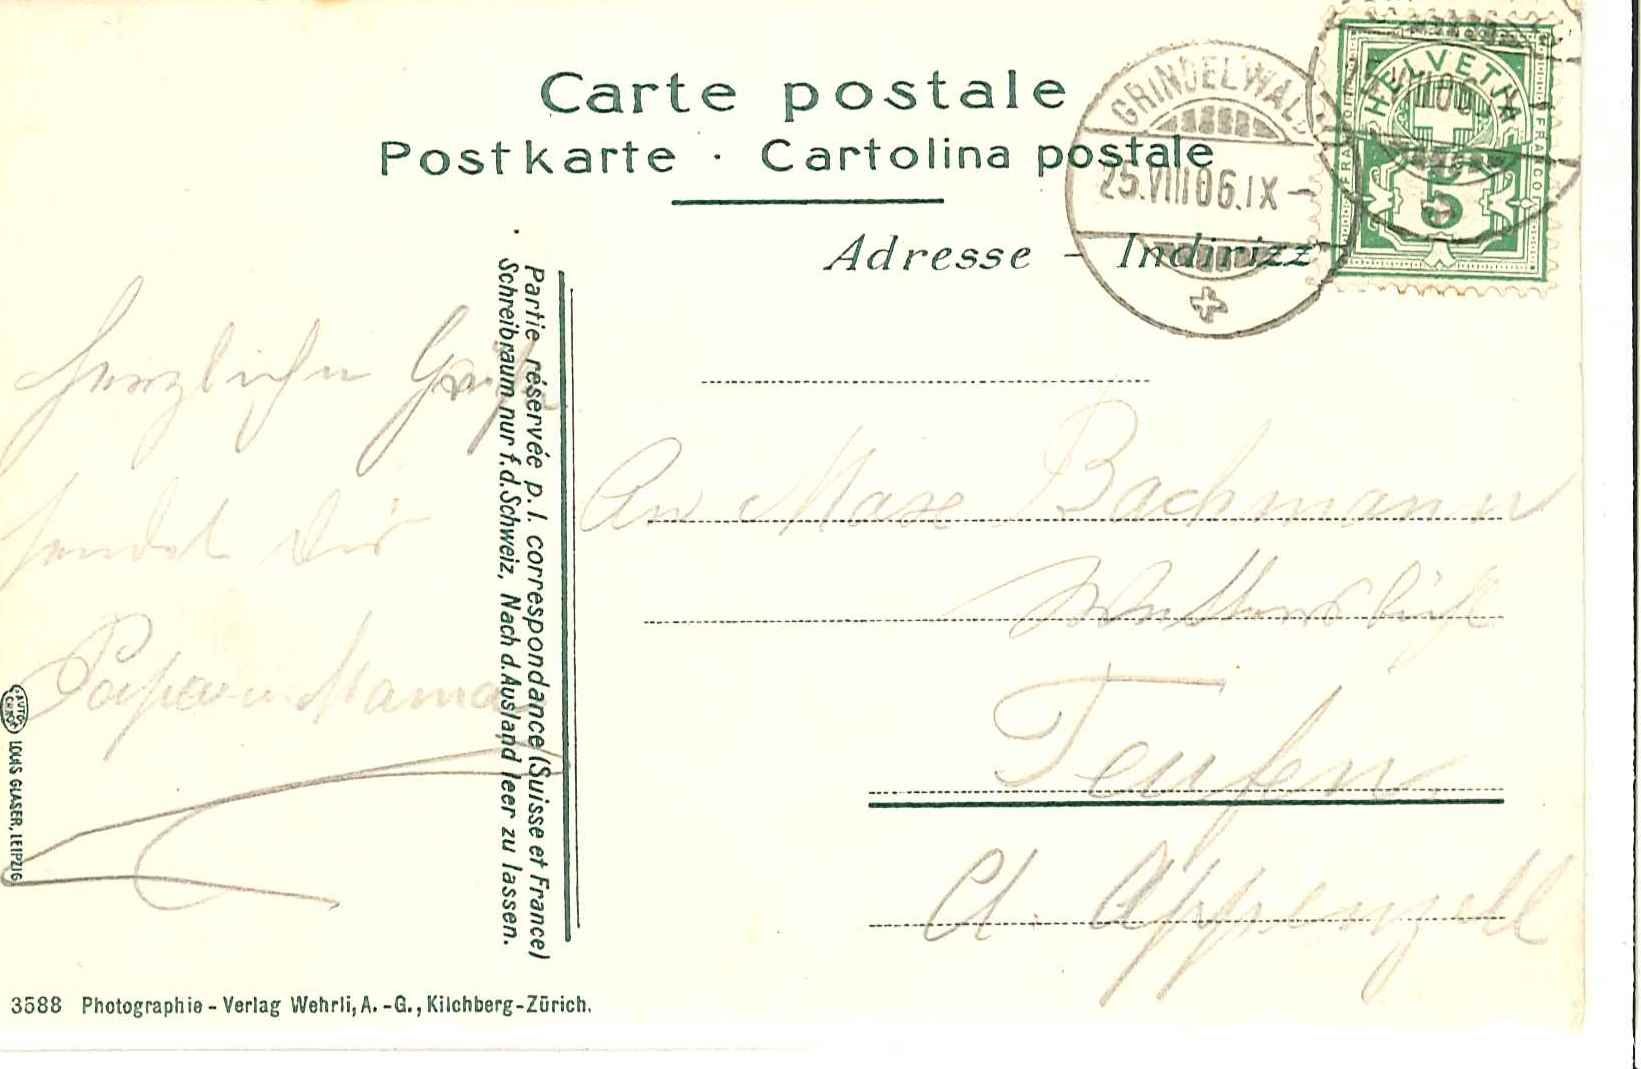 Carte postale
Postkarte · Cartolina postale
Adresse - Indirizz
GRINDELWALD
25.VIII 06.IX-
HELVETIA
FRANCO
FRANCO
5
Partie réservée p. l. correspondance (Suisse et France)
Schreibraum nur f. d. Schweiz, Nach d. Ausland leer zu lassen.
Herzlichen Gruss
sendet Dir
Papa u Mama
An Max Bachmann
Teufen
Ct. Appenzell
LOUIS GLASER, LEIPZIG
3588 Photographie - Verlag Wehrli, A. -G., Kilchberg-Zürich.